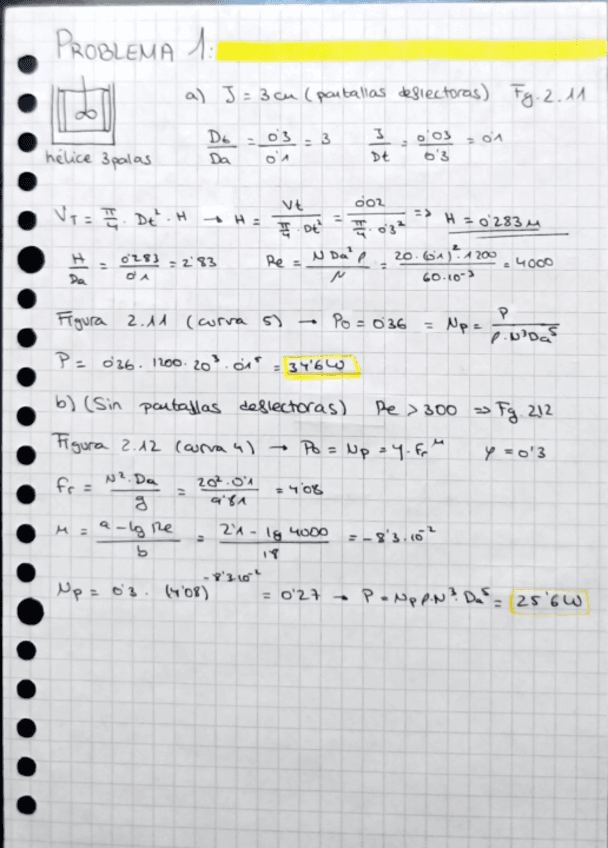 PROBLEMA 1:
a) J = 3 cm (pantallas deflectoras) Fg. 2.11
Dt/Da = 0'3/0'1 = 3 J/Dt = 0'03/0'3 = 0'1
hélice 3 palas
VT = π/4 · Dt² · H → H = Vt/(π/4 · Dt²) = 0'02/(π/4 · 0'3²) => H = 0'283 m
H/Da = 0'283/0'1 = 2'83 Re = N Da² ρ/μ = 20·(0'1)²·1200/60·10⁻³ = 4000
Figura 2.11 (curva 5) → Po = 0'36 = Np = P/ρ·N³Da⁵
P = 0'36 · 1200 · 20³ · 0'1⁵ = 34'6 W
b) (Sin pantallas deflectoras) Re > 300 => Fg. 2.12
Figura 2.12 (curva 4) → Po = Np = φ · Fr^M φ = 0'3
Fr = N²·Da/g = 20²·0'1/9'81 = 4'08
M = a - lg Re/b = 2'1 - lg 4000/18 = -8'3·10⁻²
Np = 0'3 · (4'08)^-8'3·10⁻² = 0'27 → P = Np ρ·N³·Da⁵ = 25'6 W